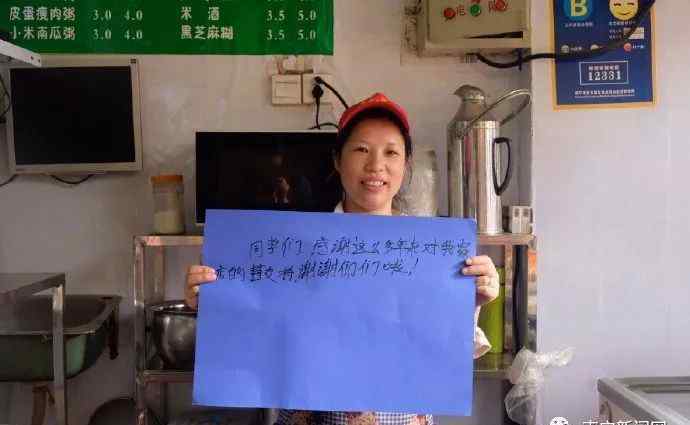 皮蛋瘦肉粥 3.0 4.0 米酒 3.5 5.0
小米南瓜粥 3.0 4.0 黑芝麻糊 3.5 5.0
B
12331
同学们！感谢这么多年来对我窗
口的支持，谢谢你们们啦！
南宁新闻网